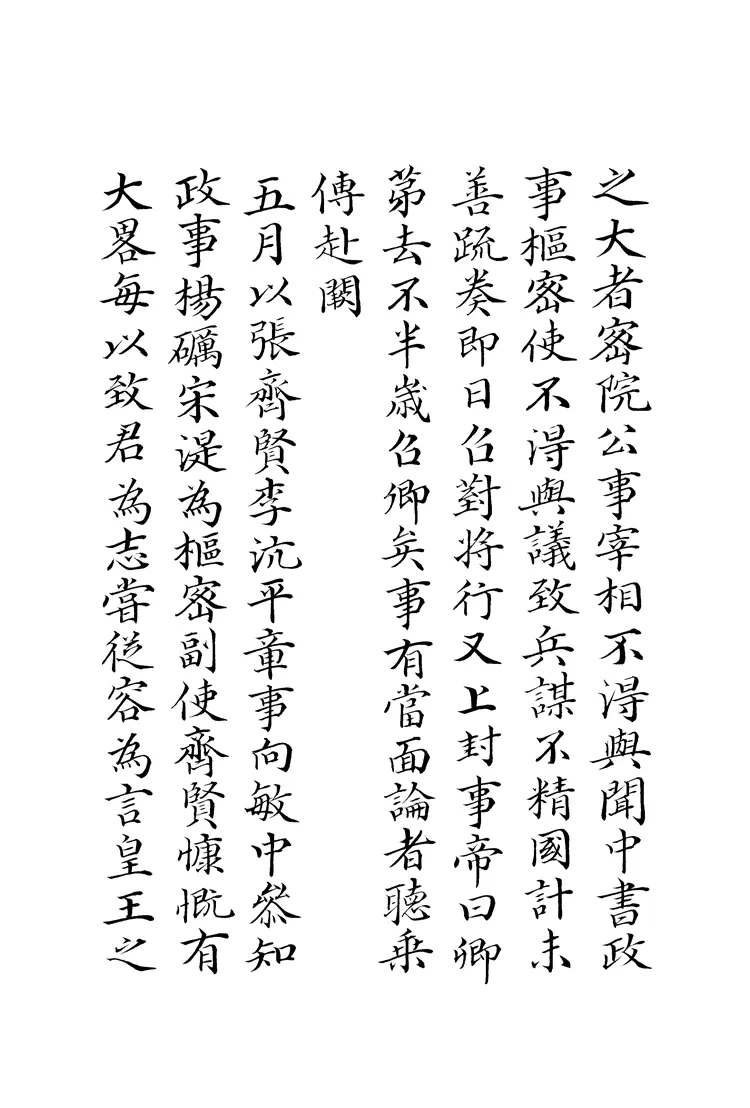 之大者密院公事宰相不得與聞中書政
事樞密使不得與議致兵謀不精國計未
善疏奏即日召對將行又上封事帝曰卿
苐去不半歲召卿矣事有當面論者聽乗
傳赴闕
五月以張齊賢李沆平章事向敏中叅知
政事楊礪宋湜為樞密副使齊賢慷慨有
大畧每以致君為志嘗從容為言皇王之